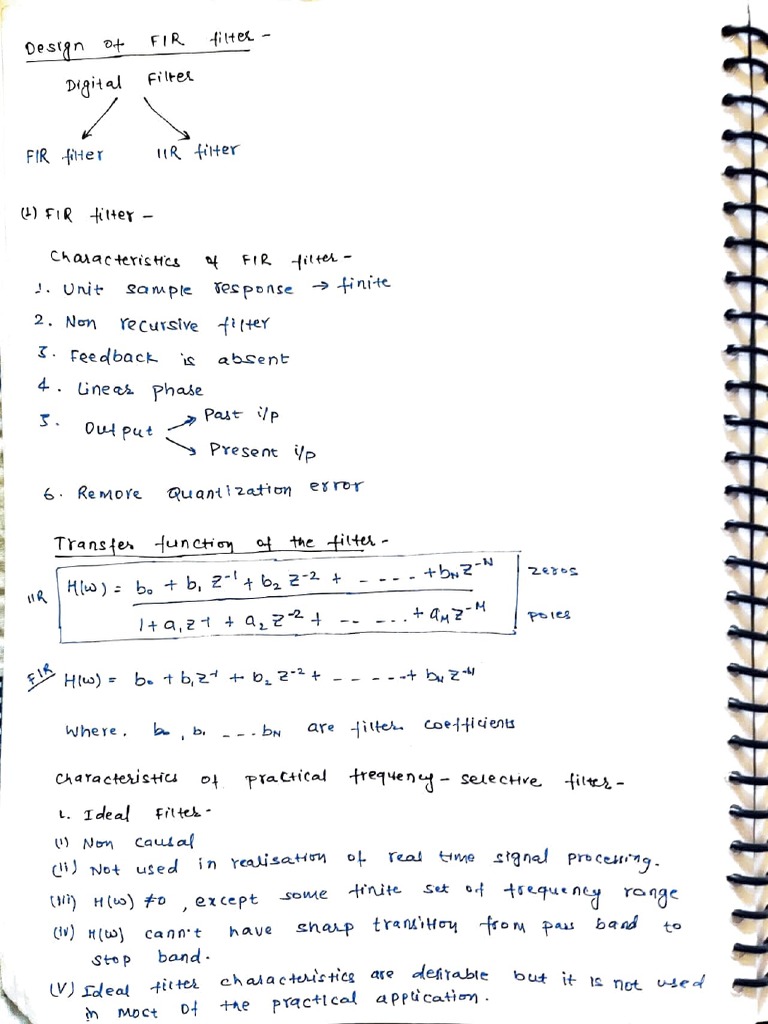 Design of FIR filter -
Digital Filter
FIR filter IIR filter
(1) FIR filter -
Characteristics of FIR filter -
1. Unit sample response → finite
2. Non recursive filter
3. Feedback is absent
4. Linear phase
5. Output Past i/p
Present i/p
6. Remove Quantization error
Transfer function of the filter -
IIR H(ω) = b₀ + b₁ z⁻¹ + b₂ z⁻² + - - - - . + b_N z⁻ᴺ zeros
1 + a₁ z⁻¹ + a₂ z⁻² + - - . . . + a_M z⁻ᴹ poles
FIR H(ω) = b₀ + b₁ z⁻¹ + b₂ z⁻² + - - - - - + b_N z⁻ᴺ
Where, b₀, b₁ --- b_N are filter coefficients
Characteristics of practical frequency - selective filter -
1. Ideal Filter -
(i) Non Causal
(ii) Not used in realisation of real time signal processing.
(iii) H(ω) ≠ 0, except some finite set of frequency range
(iv) H(ω) cann't have sharp transition from pass band to
stop band.
(V) Ideal filter characteristics are desirable but it is not used
in most of the practical application.